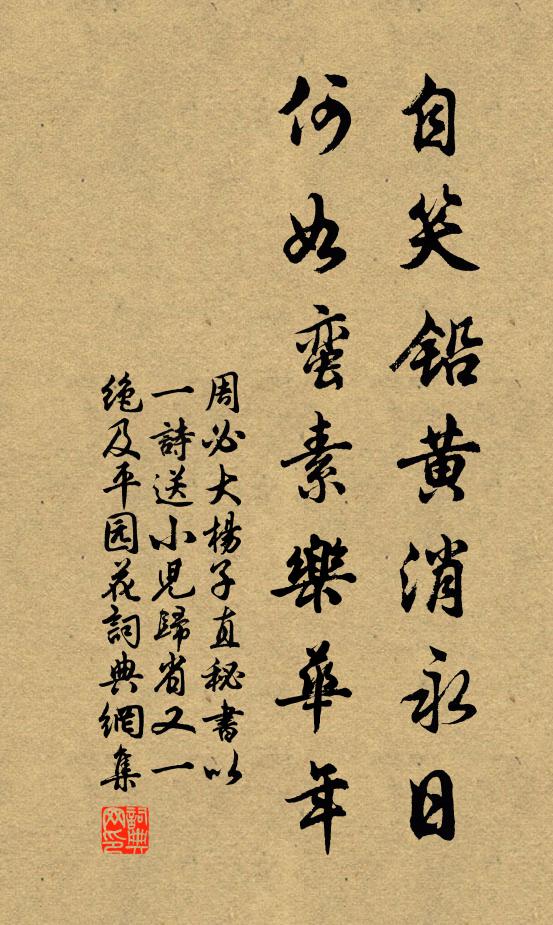 自笑铅黄消永日
何如蛮素樂華年
周必大楊子直秘書以
一詩送小児歸省又一
绝及平园花詞典網集
詞典网印